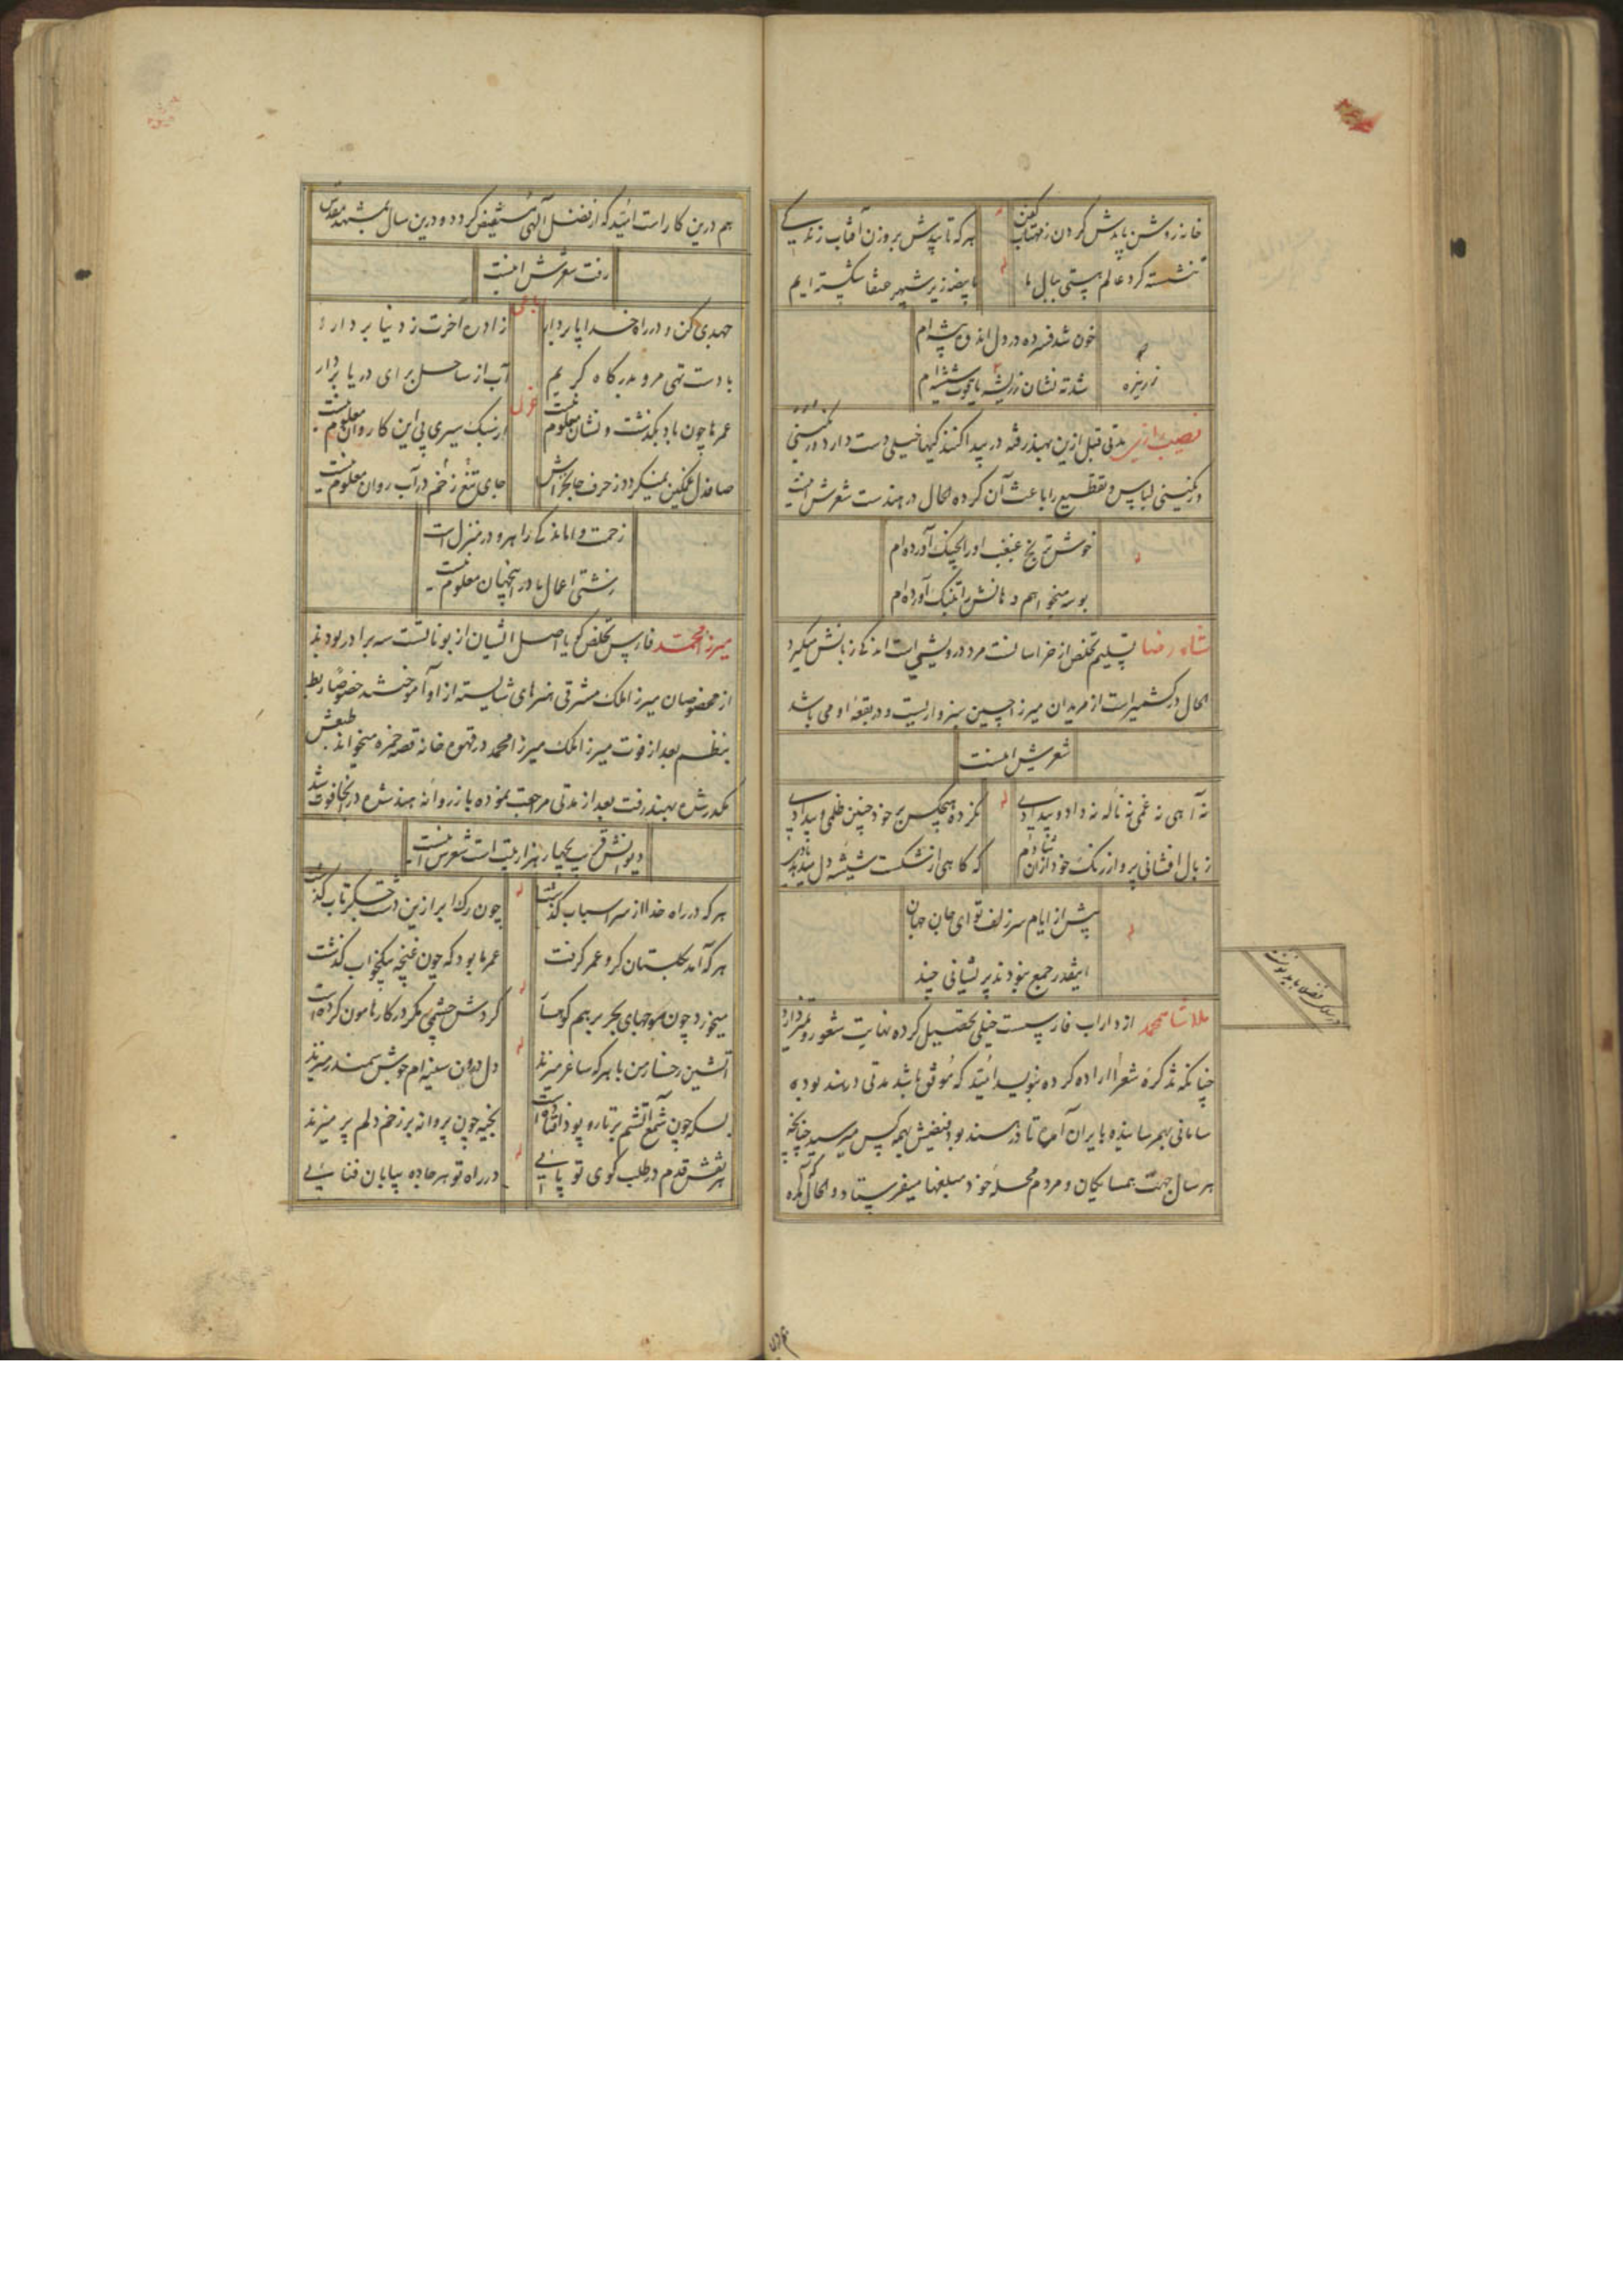 خانه روشن باید ش کردن ز مهتاب کفن
هر که تابیدش بروزن آفتاب زندگی
ننشسته گرد عالم هستی ببال ما
تا بیضه زیر شهپر عنقا شکسته ایم
خون شد فسرده در دل اندوه پیشه ام
شد ته نشان ز ریشه یاقوت شیشه ام
مدتی قبل ازین بهند رفته در پیدا کند کیها خیلی دست دارد و رنگینی
و رنگینی لباس و تقطیع را باعث آن کرده الحال در هندست شعرش اینست
خوش ترنج غبغب او را بچنگ آورده ام
بوسه میخواهم دهانش را بتنگ آورده ام
شاه رضا تسلیم تخلص از خراسانست مرد درویشی است اندکی زبانش میگیرد
الحال در کشمیر است از مریدان میرزا حسین سبزواریست و در بقعه او می باشد
شعرش اینست
نه آهی نه غمی نه ناله نه داد و بیدادی
نکرده هیچکس بر خود چنین ظلمی و بیدادی
ز بال افشانی پرواز رنگ خود ازان شادم
که گاهی از شکست شیشه دل میدهد یادی
پیش از ایام سر زلف تو ای جان جهان
اینقدر جمع نبودند پریشانی چند
ملا شاه محمد از داراب فارسست خیلی تحصیل کرده نهایت شعور و تمیز دارد
چنانکه تذکره شعرا اراده کرده بنویسد امید که موفق باشد مدتی در هند بوده
سامانی بهم رسانیده بایران آمد تا در هند بود فیضش بهمه کس میرسید چنانچه
هر سال جهت همسایگان و مردم محله خود مبلغها میفرستاد و الحال که آمده
هم درین کار است امید که از فضل آلهی مستفیض گردد و درین سال بمشهد مقدس
رفت شعرش اینست
رباعی
جهدی کن و در راه خدا پا بردار
زاد ره اخرت ز دنیا بردار
با دست تهی مرو بدرگاه کریم
آب از ساحل برای دریا بردار
غزل
عمر ما چون باد بگذشت و نشان معلوم نیست
از سبک سیری پی این کاروان معلوم نیست
صافدل غمگین نمیگردد ز حرف جانخراش
جای تیغ زخم در آب روان معلوم نیست
زحمت واماندگی راهرو در منزل است
زشتی اعمال ما در اینجهان معلوم نیست
میرزا محمد فارس تخلص گویا اصل ایشان از بوناتست سه برادر بودند
از مخصوصان میرزا ملک مشرقی هنرهای شایسته از او آموختند خصوصا ربط
بنظم بعد از فوت میرزا ملک میرزا محمد در قهوه خانه قصه حمزه میخواند طبعش
مکدر شده بهند رفت بعد از مدتی مراجعت نموده باز روانه هند شده در آنجا فوت شد
دیوانش قریب بچهار هزار بیت است شعرش اینست
هر که در راه خدا از سر اسباب گذشت
چون رگ ابر ازین دشت جگرتاب گذشت
هر که آمد بگلستان گرو عمر گرفت
عمر ما بود که چون غنچه بیکخواب گذشت
میخورد چون موجهای بحر بر هم کوهسار
گردش چشمی مگر در کار هامون کرده است
آتشین رخسار من با هر که ساغر میزند
دل درون سینه ام جوش سمندر میزند
بسکه چون شمع آتشم بر تار و پود افتاده است
بخیه چون پروانه بر زخم دلم پر میزند
هر نقش قدم در طلب کوی تو پائی
در راه تو هر جاده بیابان فنائی